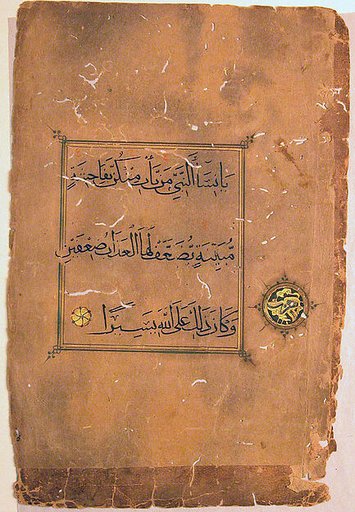 يَا نِسَاءَ النَّبِيِّ مَن يَأْتِ مِنكُنَّ بِفَاحِشَةٍ
مُّبَيِّنَةٍ يُضَاعَفْ لَهَا الْعَذَابُ ضِعْفَيْنِ
وَكَانَ ذَٰلِكَ عَلَى اللَّهِ يَسِيرًا